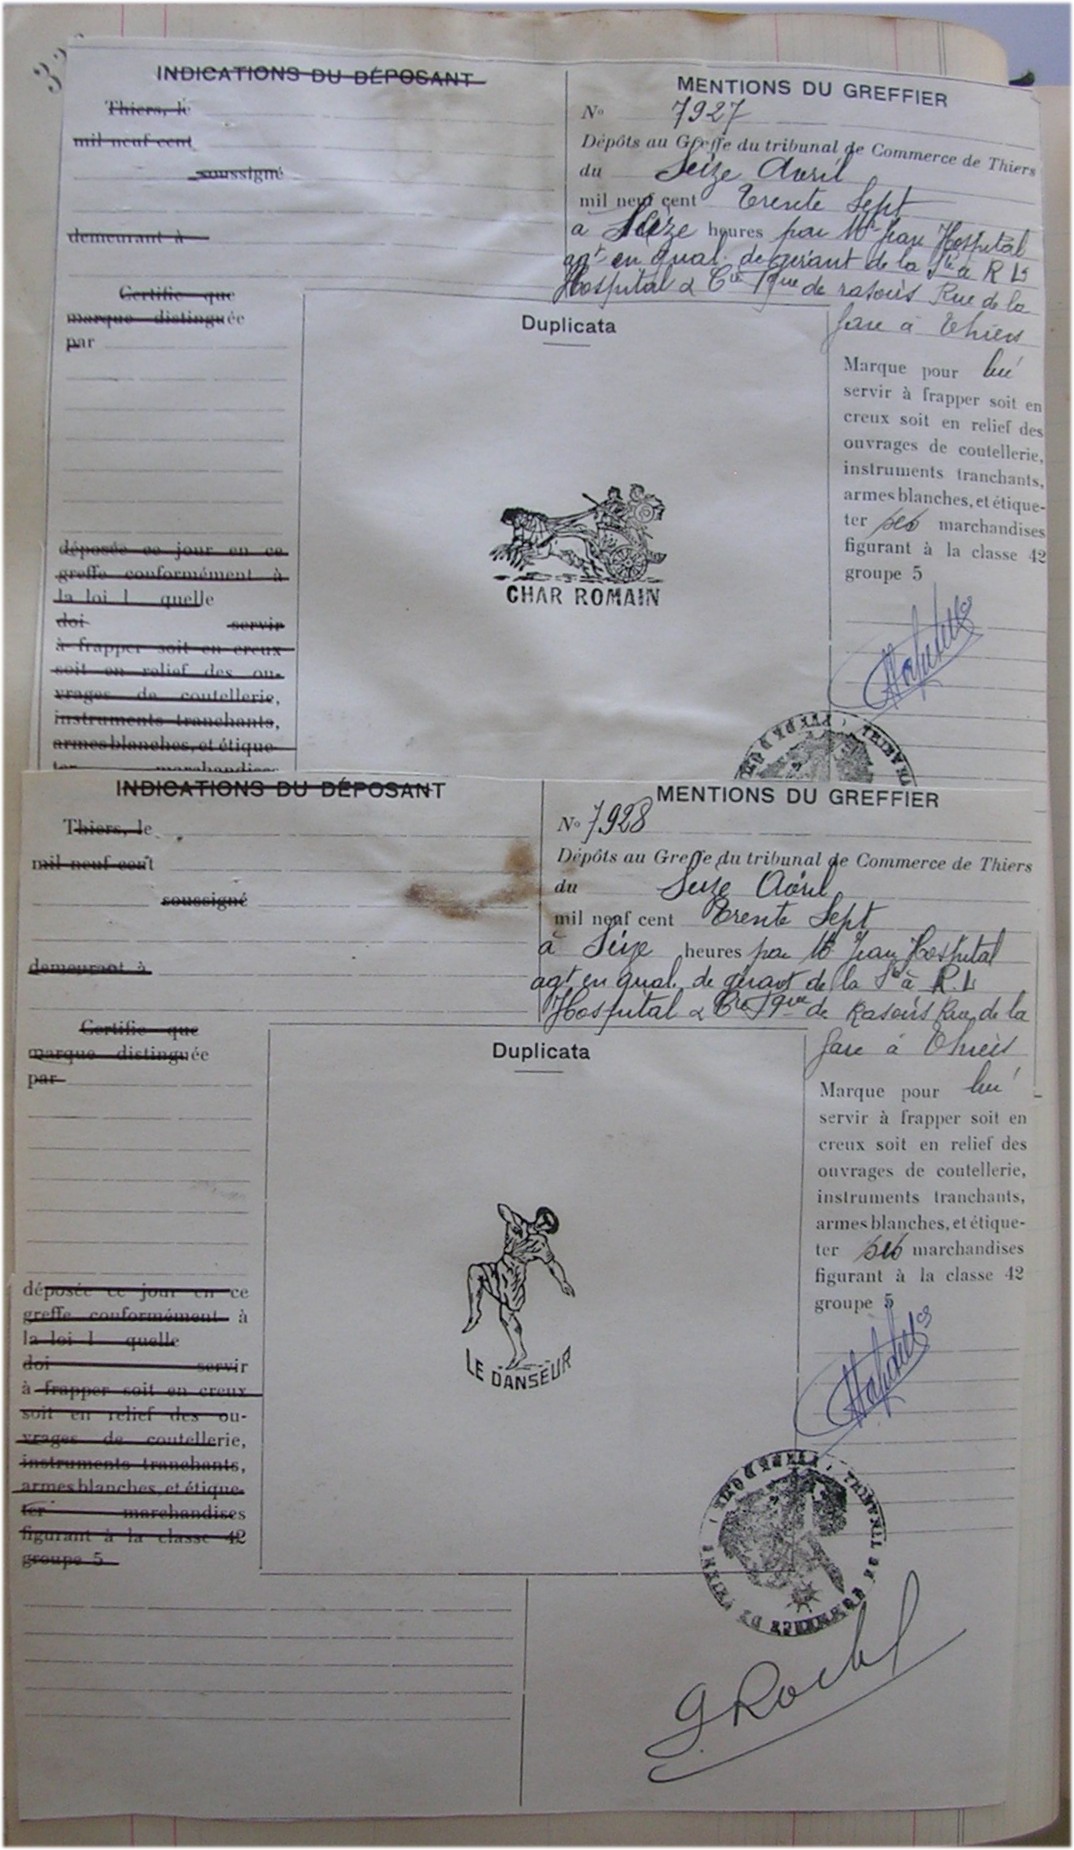 INDICATIONS DU DÉPOSANT
Thiers, le
mil neuf cent
soussigné
demeurant à
Certifie que
marque distinguée
par
déposée ce jour en ce
greffe conformément à
la loi l quelle
doi servir
à frapper soit en creux
soit en relief des ou-
vrages de coutellerie,
instruments tranchants,
armes blanches, et étique-
ter marchandises
MENTIONS DU GREFFIER
No 7927
Dépôts au Greffe du tribunal de Commerce de Thiers
du Seize Avril
mil neuf cent Trente Sept
à Seize heures par Mr Jean Hospital
agt en qual. de gérant de la Sté à R Ls
Hospital & Cie fque de rasoirs Rue de la
Gare à Thiers
Duplicata
CHAR ROMAIN
Marque pour lui
servir à frapper soit en
creux soit en relief des
ouvrages de coutellerie,
instruments tranchants,
armes blanches, et étique-
ter ses marchandises
figurant à la classe 42
groupe 5
INDICATIONS DU DÉPOSANT
Thiers, le
mil neuf cent
soussigné
demeurant à
Certifie que
marque distinguée
par
déposée ce jour en ce
greffe conformément à
la loi l quelle
doi servir
à frapper soit en creux
soit en relief des ou-
vrages de coutellerie,
instruments tranchants,
armes blanches, et étique-
ter marchandises
figurant à la classe 42
groupe 5
MENTIONS DU GREFFIER
No 7928
Dépôts au Greffe du tribunal de Commerce de Thiers
du Seize Avril
mil neuf cent Trente Sept
à Seize heures par Mr Jean Hospital
agt en qual. de gérant de la Sté à R. L
Hospital & Cie fque de Rasoirs Rue de la
Gare à Thiers
Duplicata
LE DANSEUR
Marque pour lui
servir à frapper soit en
creux soit en relief des
ouvrages de coutellerie,
instruments tranchants,
armes blanches, et étique-
ter ses marchandises
figurant à la classe 42
groupe 5
TRIBUNAL DE COMMERCE DE THIERS